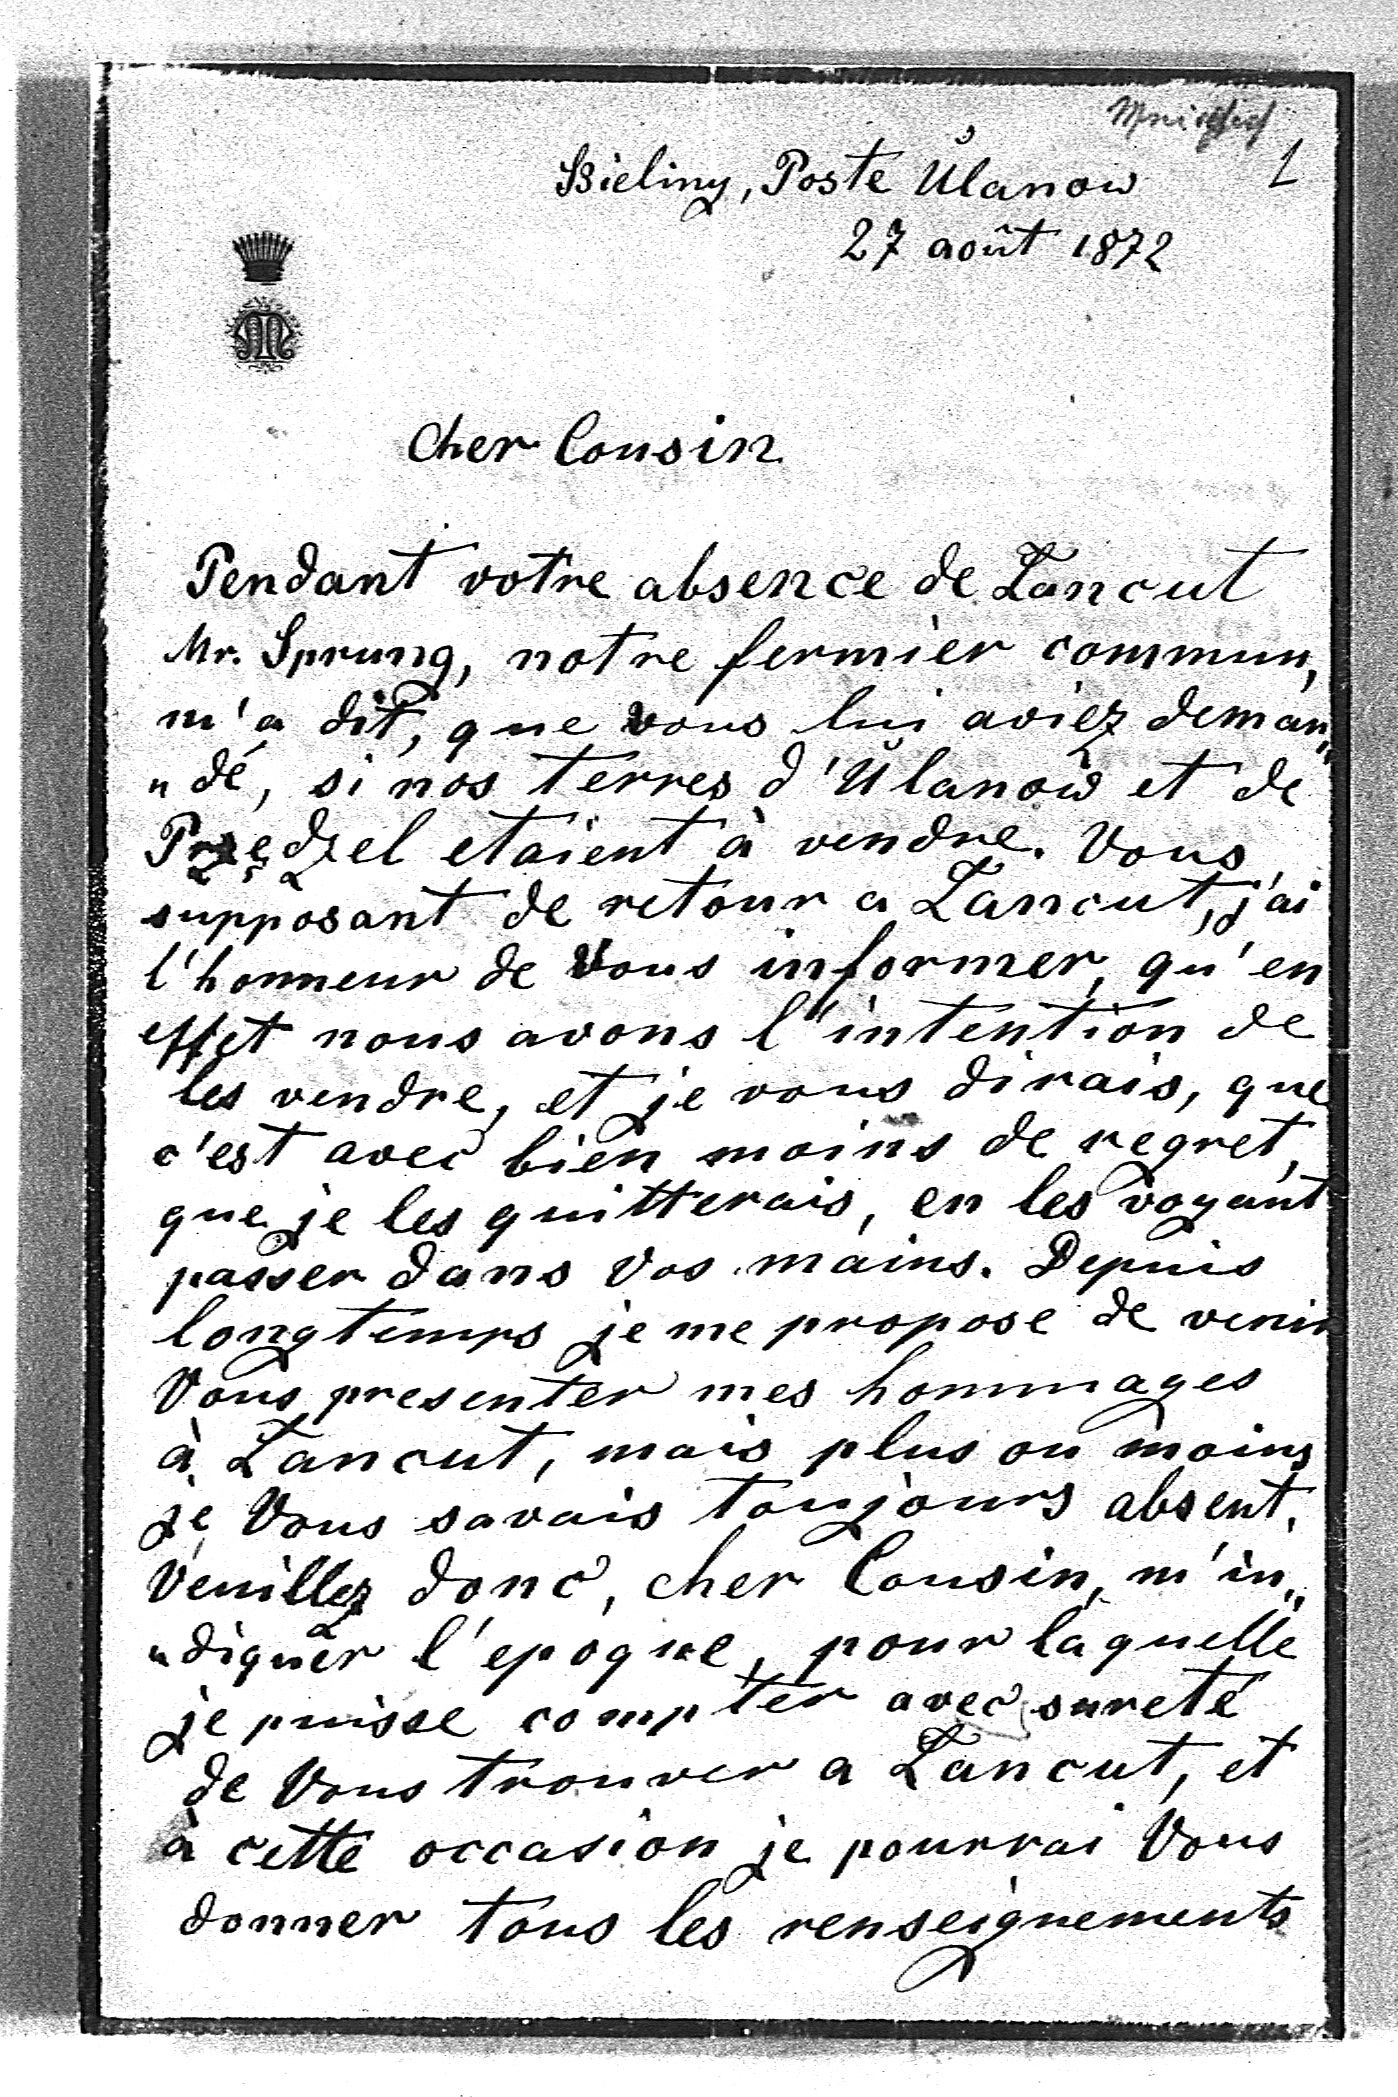 Bieliny, Poste Ulanow 1
27 août 1872
M
Cher Cousin
Pendant votre absence de Łancut
Mr. Sprung, notre fermier commun,
m'a dit, que vous lui aviez deman„
„dé, si nos terres d'Ulanow et de
Przędzel etaient à vendre. Vous
supposant de retour a Łancut, j'ai
l'honneur de Vous informer, qu'en
effet nous avons l'intention de
les vendre, et je vous dirais, que
c'est avec bien moins de regret,
que je les quitterais, en les voyant
passer dans Vos mains. Depuis
longtemps je me propose de venir
Vous presenter mes hommages
à Łancut, mais plus ou moins
je Vous savais toujours absent.
Veuillez donc, cher Cousin, m'in„
„diquer l'epoque, pour laquelle
je puisse compter avec sureté
de Vous trouver a Łancut, et
à cette occasion je pourrai Vous
donner tous les renseignements